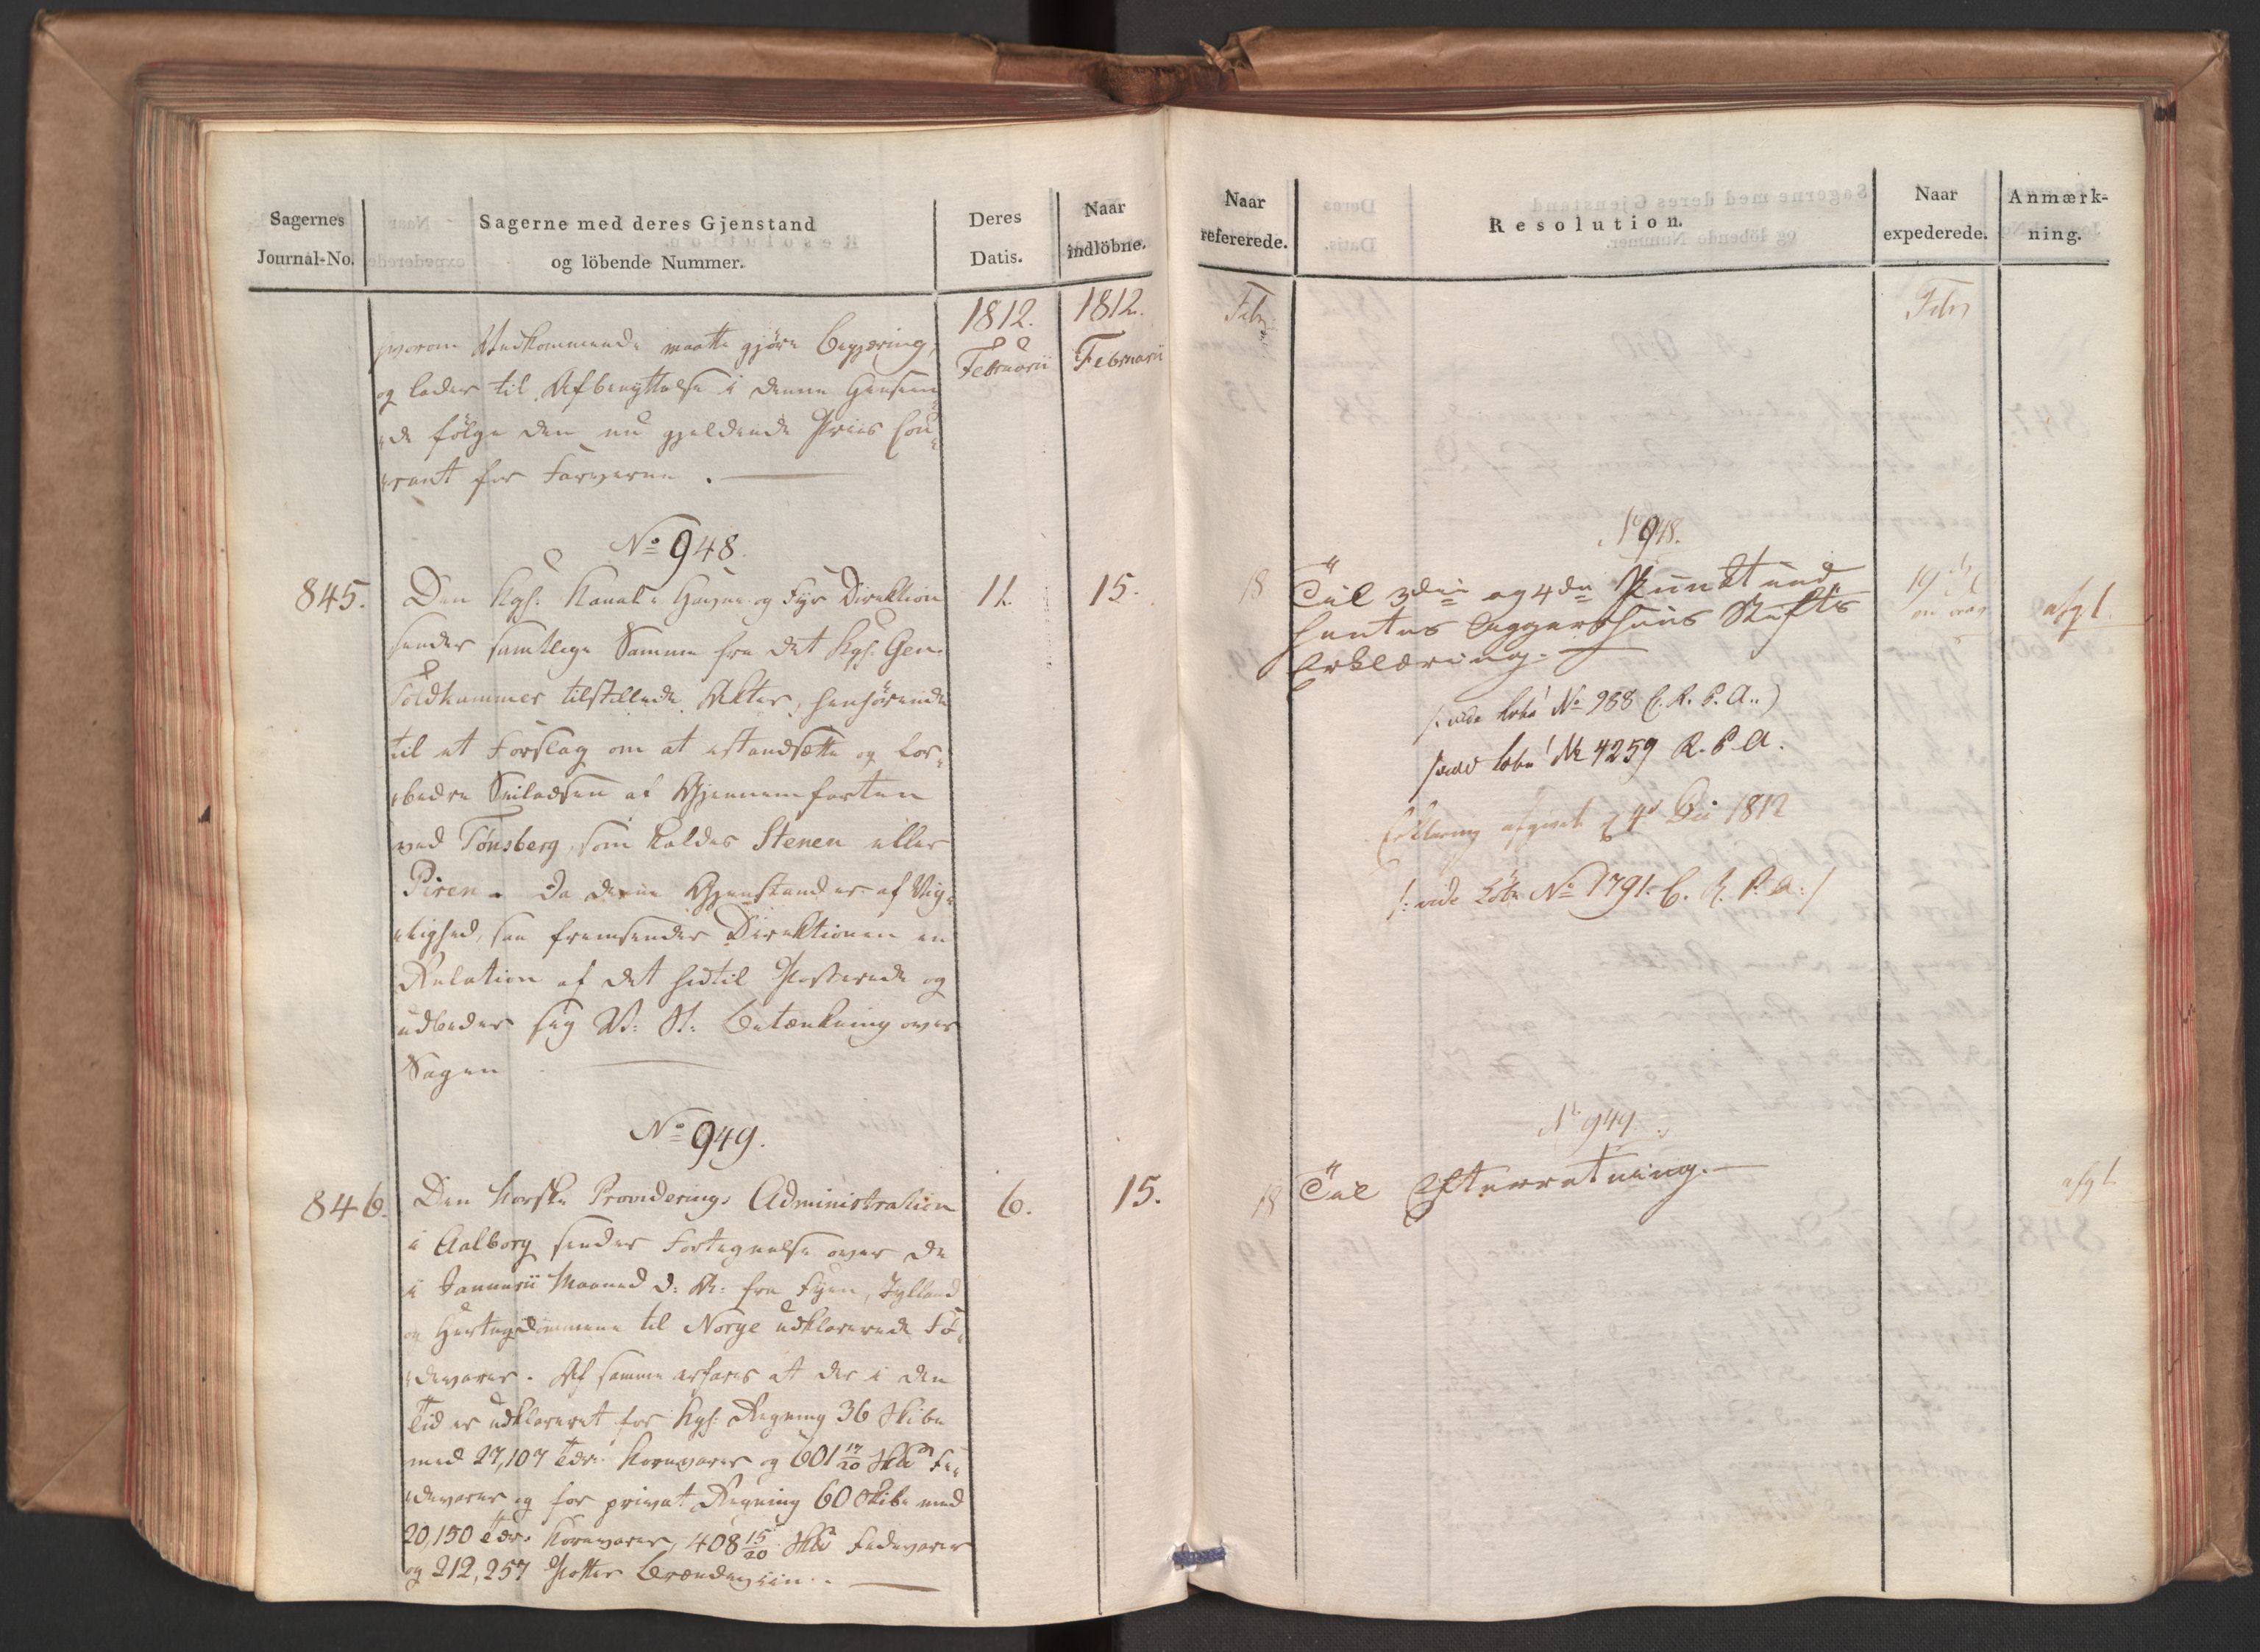 Sagernes
Journal-No.
Sagerne med deres Gjenstand
og löbende Nummer.
Deres
Datis.
Naar
indlöbne.
1812.
Februarii
1812.
Februarii
hvorom Vedkommende maatte gjöre Begjæring,
og lader til Afbenyttelse i denne Henseen¬
de fölge den nu gjeldende Priis Cou¬
rant for Farverne.
No 948.
845.
Den Kgl. Kanal- Havne- og Fyr Direktion
sender samtlige Samme fra det Kgl. Gen.
Toldkammer tilstillede Akter, henhörende
til et Forslag om at istandsætte og for¬
bedre Seiladsen af Gjennemfarten
ved Tönsberg, som kaldes Stenen eller
Piren. Da denne Gjenstand er af Vig¬
tighed, saa fremsender Direktionen en
Relation af det hidtil Passerede og
udbeder sig R: K: Betænkning over
Sagen
11.
15.
No 949.
846.
Den Norske Providerings Administration
i Aalborg sender Fortegnelse over de
i Januarii Maaned d: A: fra Fyen, Jylland
og Hertugdömmene til Norge udklarerede Fö¬
devarer. Af samme erfares at der i den
Tid er udklareret for Kgl: Regning 36 Skibe
med 27,107 Tdr. Kornvarer og 601 17/20 Sk℔ Fe¬
devarer og for privat Regning 60 Skibe med
20,150 Tdr. Kornvarer, 408 15/20 Sk℔ Fedevarer
og 212,257 Potter Brændeviin.
6.
15.
Naar
refererede.
Resolution.
Naar
expederede.
Anmærk-
ning.
Febr
Febr
No 948.
18
Til 3die og 4de Punkt ind
hentes Aggershuus Stifts
Erklæring.
19
afgl.
/: vide Löbe No 988 C. R. P. A.:)
/vide Löbe No 4259 R. P. A.
Erklæring afgivet 4de Dec 1812
/: vide Löbe No 1791. C. R. P. A:/
No 949.
18
Til Efterretning.
afgl.